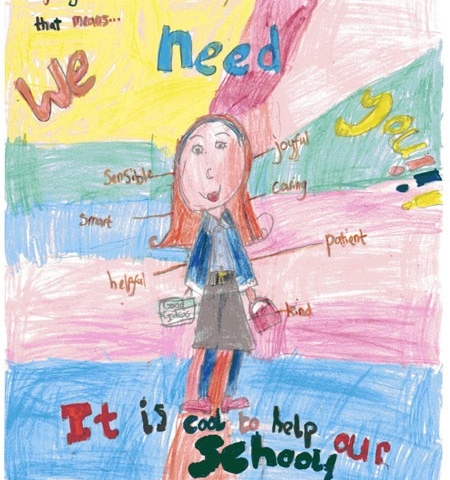 that means...
We need you!
sensible
joyful
caring
smart
patient
helpful
Good
kind
It is cool to help our
school